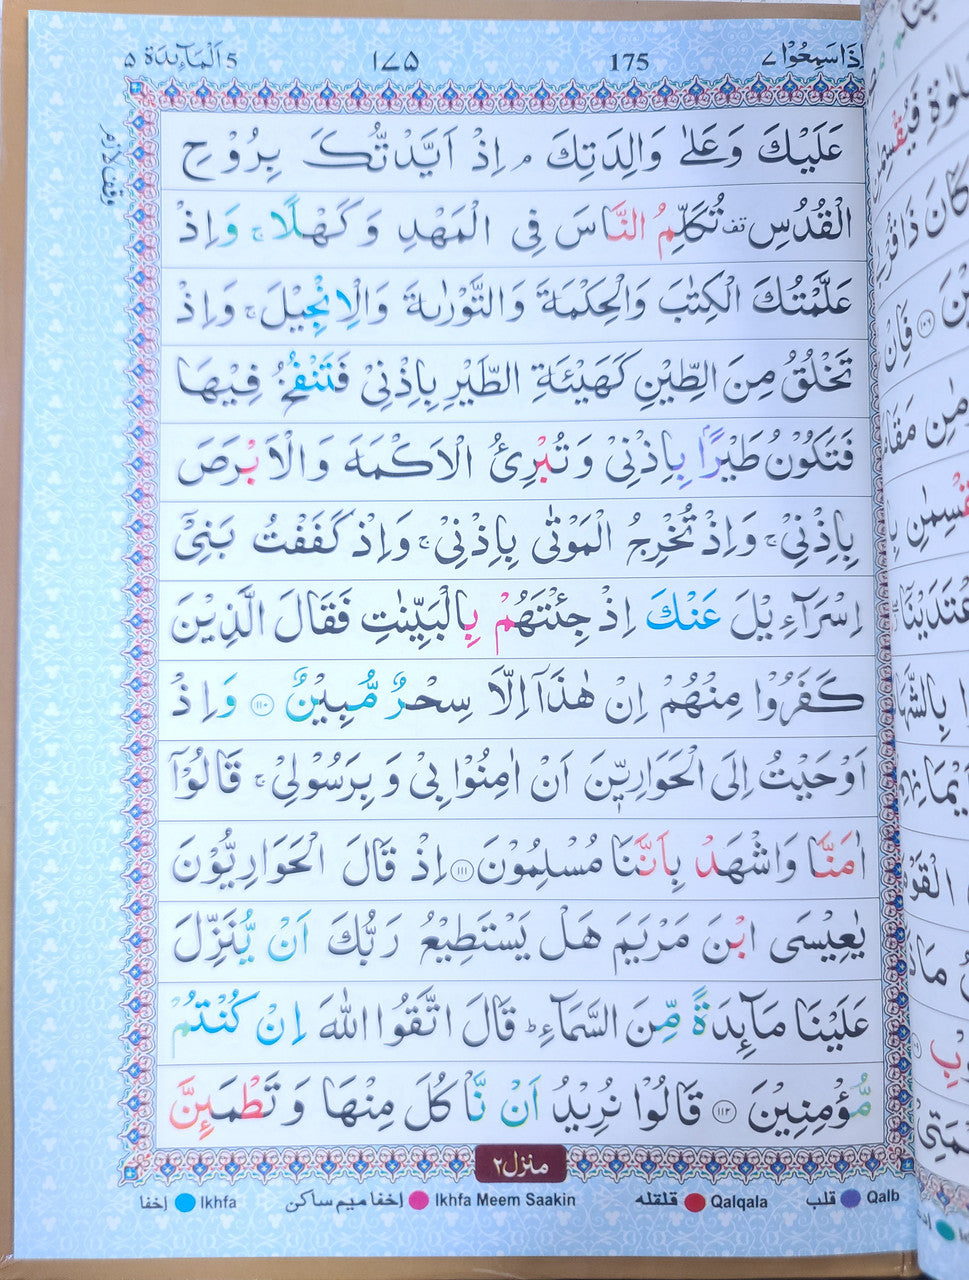 وَاِذَا سَمِعُوْا ۷ 175 ۱۷۵ 5 اَلْمَآئِدَة ۵
عَلَيْكَ وَعَلٰى وَالِدَتِكَ ۘ اِذْ اَيَّدْتُّكَ بِرُوْحِ
الْقُدُسِ تُكَلِّمُ النَّاسَ فِى الْمَهْدِ وَكَهْلًا ۚ وَاِذْ
عَلَّمْتُكَ الْكِتٰبَ وَالْحِكْمَةَ وَالتَّوْرٰىةَ وَالْاِنْجِيْلَ ۚ وَاِذْ
تَخْلُقُ مِنَ الطِّيْنِ كَهَيْئَةِ الطَّيْرِ بِاِذْنِىْ فَتَنْفُخُ فِيْهَا
فَتَكُوْنُ طَيْرًاۢ بِاِذْنِىْ وَتُبْرِئُ الْاَكْمَهَ وَالْاَبْرَصَ
بِاِذْنِىْ ۚ وَاِذْ تُخْرِجُ الْمَوْتٰى بِاِذْنِىْ ۚ وَاِذْ كَفَفْتُ بَنِىْٓ
اِسْرَآءِيْلَ عَنْكَ اِذْ جِئْتَهُمْ بِالْبَيِّنٰتِ فَقَالَ الَّذِيْنَ
كَفَرُوْا مِنْهُمْ اِنْ هٰذَآ اِلَّا سِحْرٌ مُّبِيْنٌ ۝۱۱۰ وَاِذْ
اَوْحَيْتُ اِلَى الْحَوَارِيّٖنَ اَنْ اٰمِنُوْا بِىْ وَبِرَسُوْلِىْ ۚ قَالُوْٓا
اٰمَنَّا وَاشْهَدْ بِاَنَّنَا مُسْلِمُوْنَ ۝۱۱۱ اِذْ قَالَ الْحَوَارِيُّوْنَ
يٰعِيْسَى ابْنَ مَرْيَمَ هَلْ يَسْتَطِيْعُ رَبُّكَ اَنْ يُّنَزِّلَ
عَلَيْنَا مَآئِدَةً مِّنَ السَّمَآءِ ؕ قَالَ اتَّقُوا اللّٰهَ اِنْ كُنْتُمْ
مُّؤْمِنِيْنَ ۝۱۱۲ قَالُوْا نُرِيْدُ اَنْ نَّاْكُلَ مِنْهَا وَتَطْمَئِنَّ
منزل۲
Qalb قلب Qalqala قلقله Ikhfa Meem Saakin اخفا ميم ساكن Ikhfa اخفا